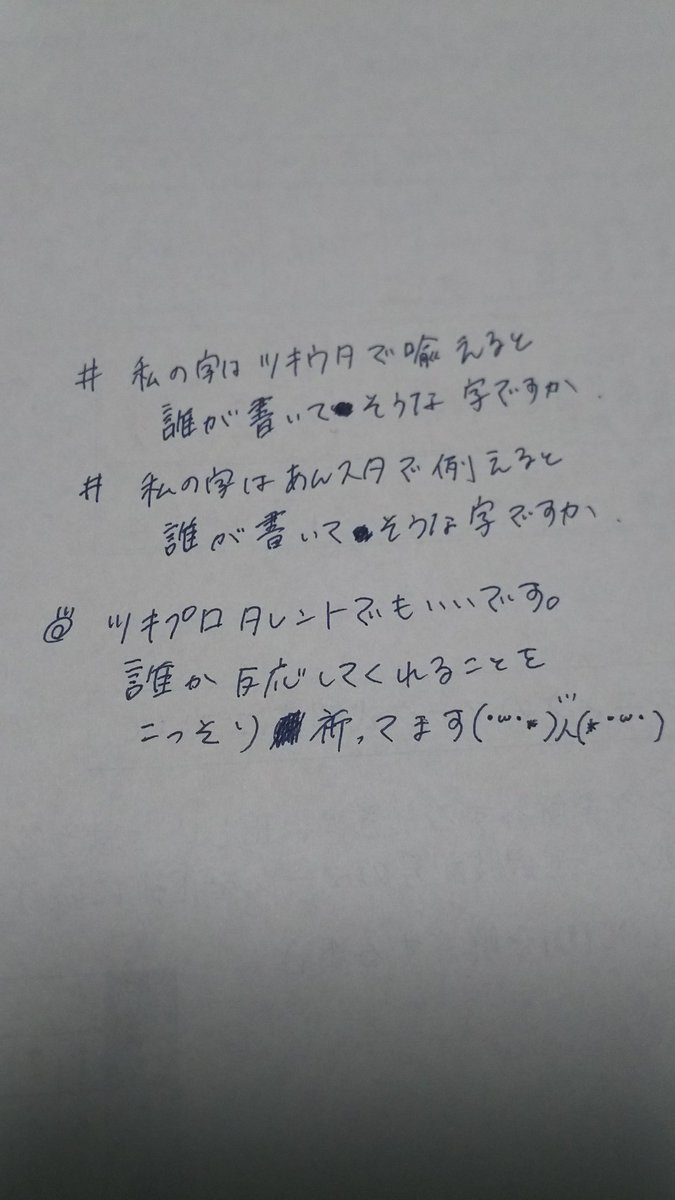 # 私の字はツキウタで喩えると
誰が書いてそうな字ですか.
# 私の字はあんスタで例えると
誰が書いてそうな字ですか.
ツキプロタレントでもいいです。
誰か反応してくれることを
こっそり祈ってます(・ω・*)人(*・ω・)